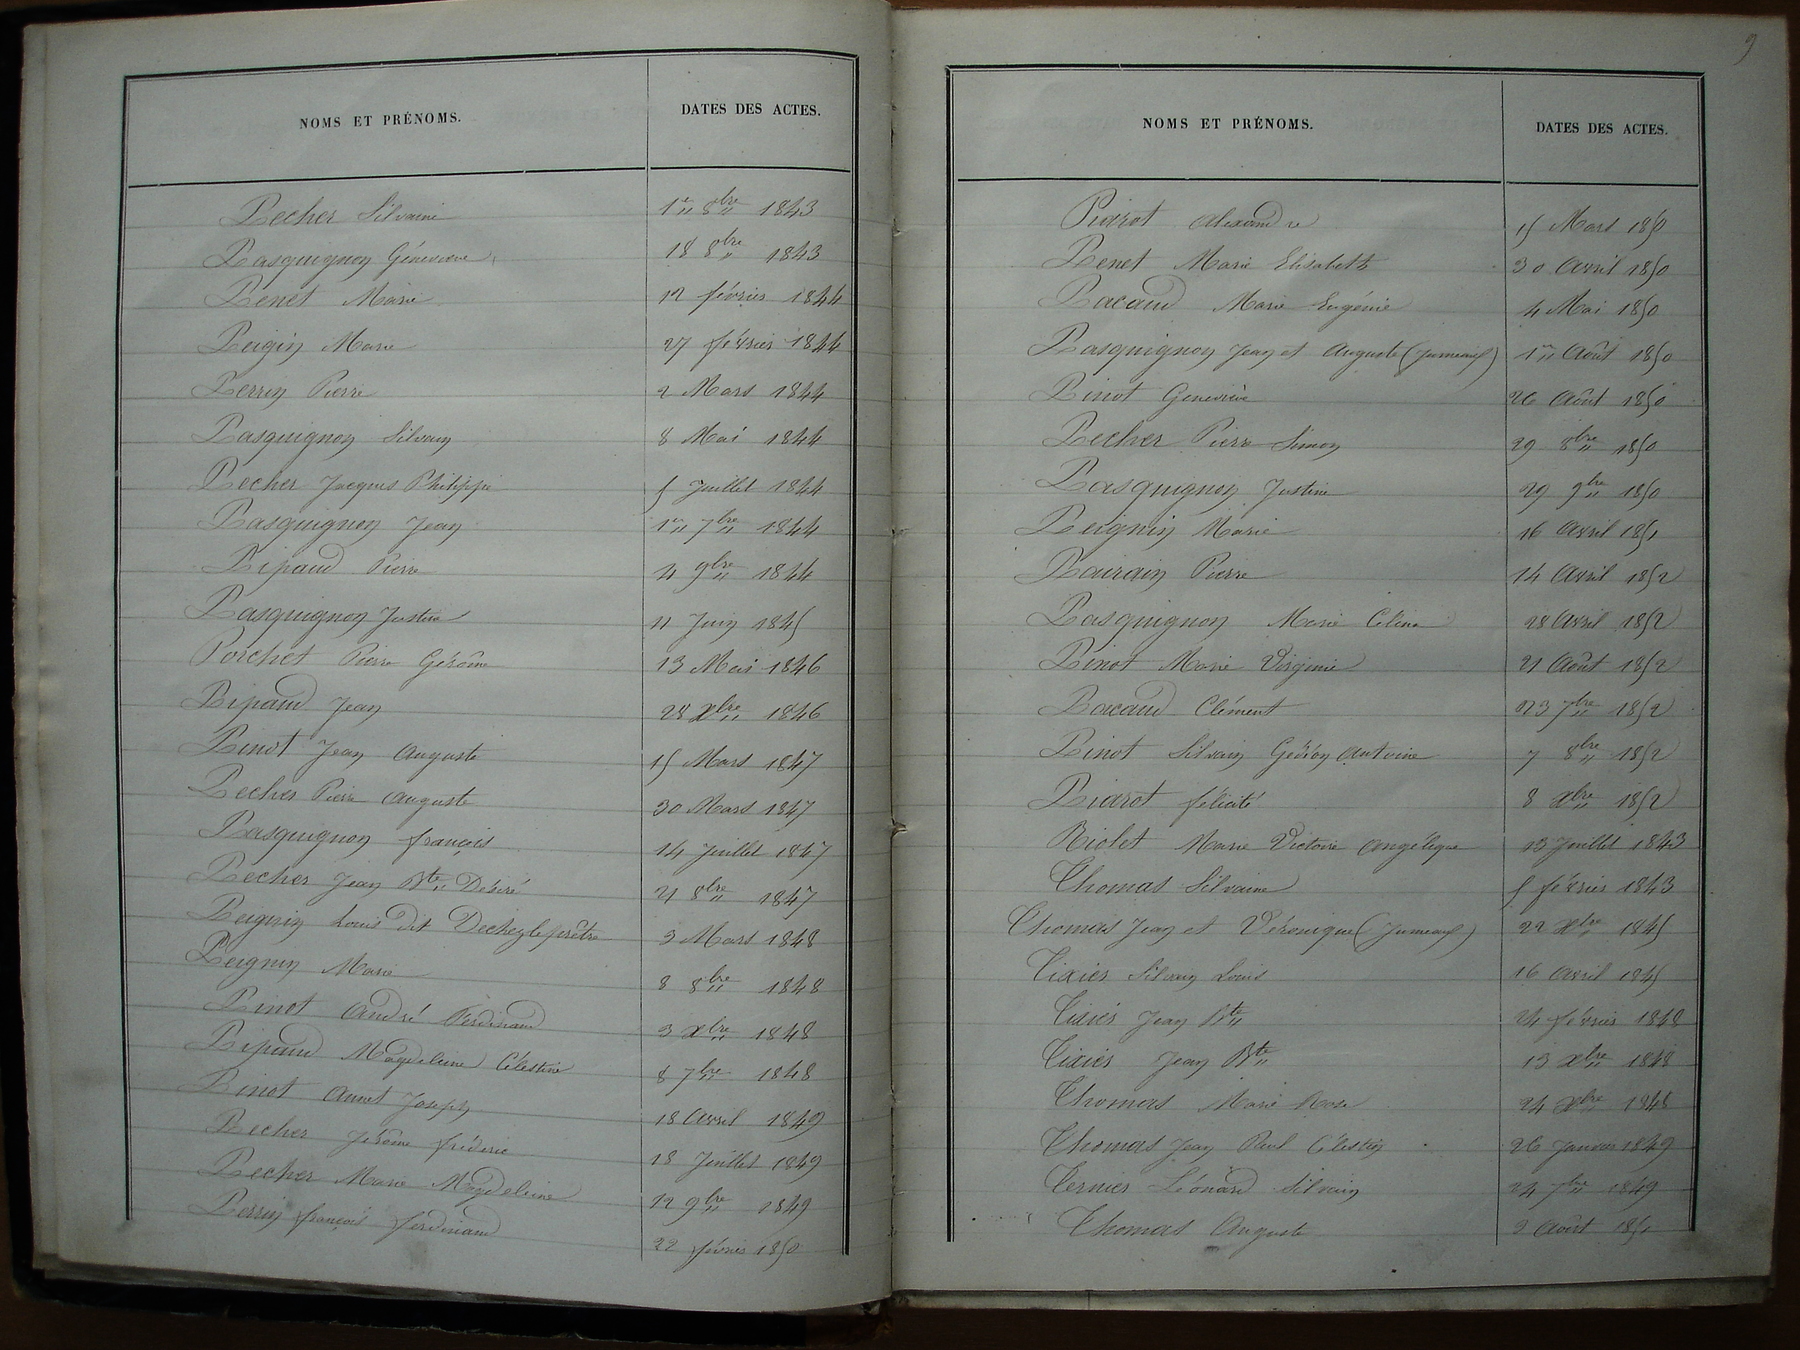 9
NOMS ET PRÉNOMS. DATES DES ACTES.
Pecher Silvaine 1er 8bre 1843
Pasquignon Géneviève 18 8bre 1843
Penet Marie 12 février 1844
Peigin Marie 27 février 1844
Perrin Pierre 2 Mars 1844
Pasquignon Silvain 8 Mai 1844
Pecher Jacques Philippe 5 Juillet 1844
Pasquignon Jean 1er 7bre 1844
Pipaud Pierre 4 9bre 1844
Pasquignon Justine 11 Juin 1845
Porchet Pierre Gérôme 13 Mai 1846
Pipaud Jean 28 Xbre 1846
Pinot Jean Auguste 15 Mars 1847
Pecher Pierre Auguste 30 Mars 1847
Pasquignon françois 14 Juillet 1847
Pecher Jean Bte Désiré 21 8bre 1847
Peignin Louis dit Dechezleprêtre 3 Mars 1848
Peignin Marie 8 8bre 1848
Pinot André Ferdinand 3 Xbre 1848
Pipaud Magdeleine Célestine 8 7bre 1848
Pinot Annet Joseph 18 Avril 1849
Pecher Jérôme fréderic 18 Juillet 1849
Pecher Marie Magdeleine 12 9bre 1849
Perrin françois ferdinand 22 février 1850
NOMS ET PRÉNOMS. DATES DES ACTES.
Piarot Alexandre 15 Mars 1850
Penet Marie Elisabeth 30 Avril 1850
Pacaud Marie Eugénie 4 Mai 1850
Pasquignon Jean et Auguste (Jumeaux) 1er Août 1850
Pinot Geneviève 26 Août 1850
Pecher Pierre Simon 29 8bre 1850
Pasquignon Justine 29 9bre 1850
Peignin Marie 16 Avril 1851
Paurain Pierre 14 Avril 1852
Pasquignon Marie Céline 28 Avril 1852
Pinot Marie Virginie 21 Août 1852
Pacaud Clément 23 7bre 1852
Pinot Silvain Gédéon Antoine 7 8bre 1852
Piarot félicité 8 Xbre 1852
Riolet Marie Victoire Angélique 13 Juillet 1843
Thomas Silvaine 5 février 1843
Thomas Jean et Véronique (Jumeaux) 22 Xbre 1845
Tixier Silvain Louis 16 Avril 1845
Tixier Jean Bte 24 février 1848
Tixier Jean Bte 13 Xbre 1848
Thomas Marie Rose 24 Xbre 1848
Thomas Jean Paul Célestin 26 Janvier 1849
Ternier Léonard Silvain 24 7bre 1849
Thomas Auguste 2 Août 1851